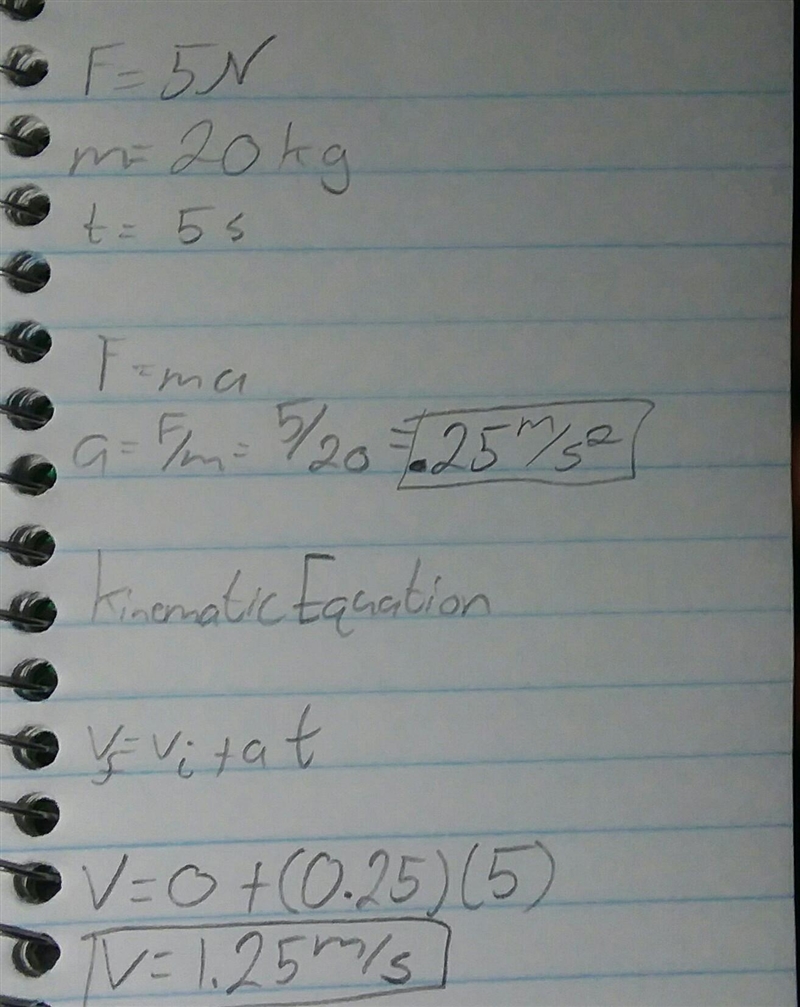 F = 5N
m = 20 kg
t = 5 s
F = ma
a = F/m = 5/20 = .25 m/s²
Kinematic Equation
Vf = Vi + at
V = 0 + (0.25)(5)
V = 1.25 m/s